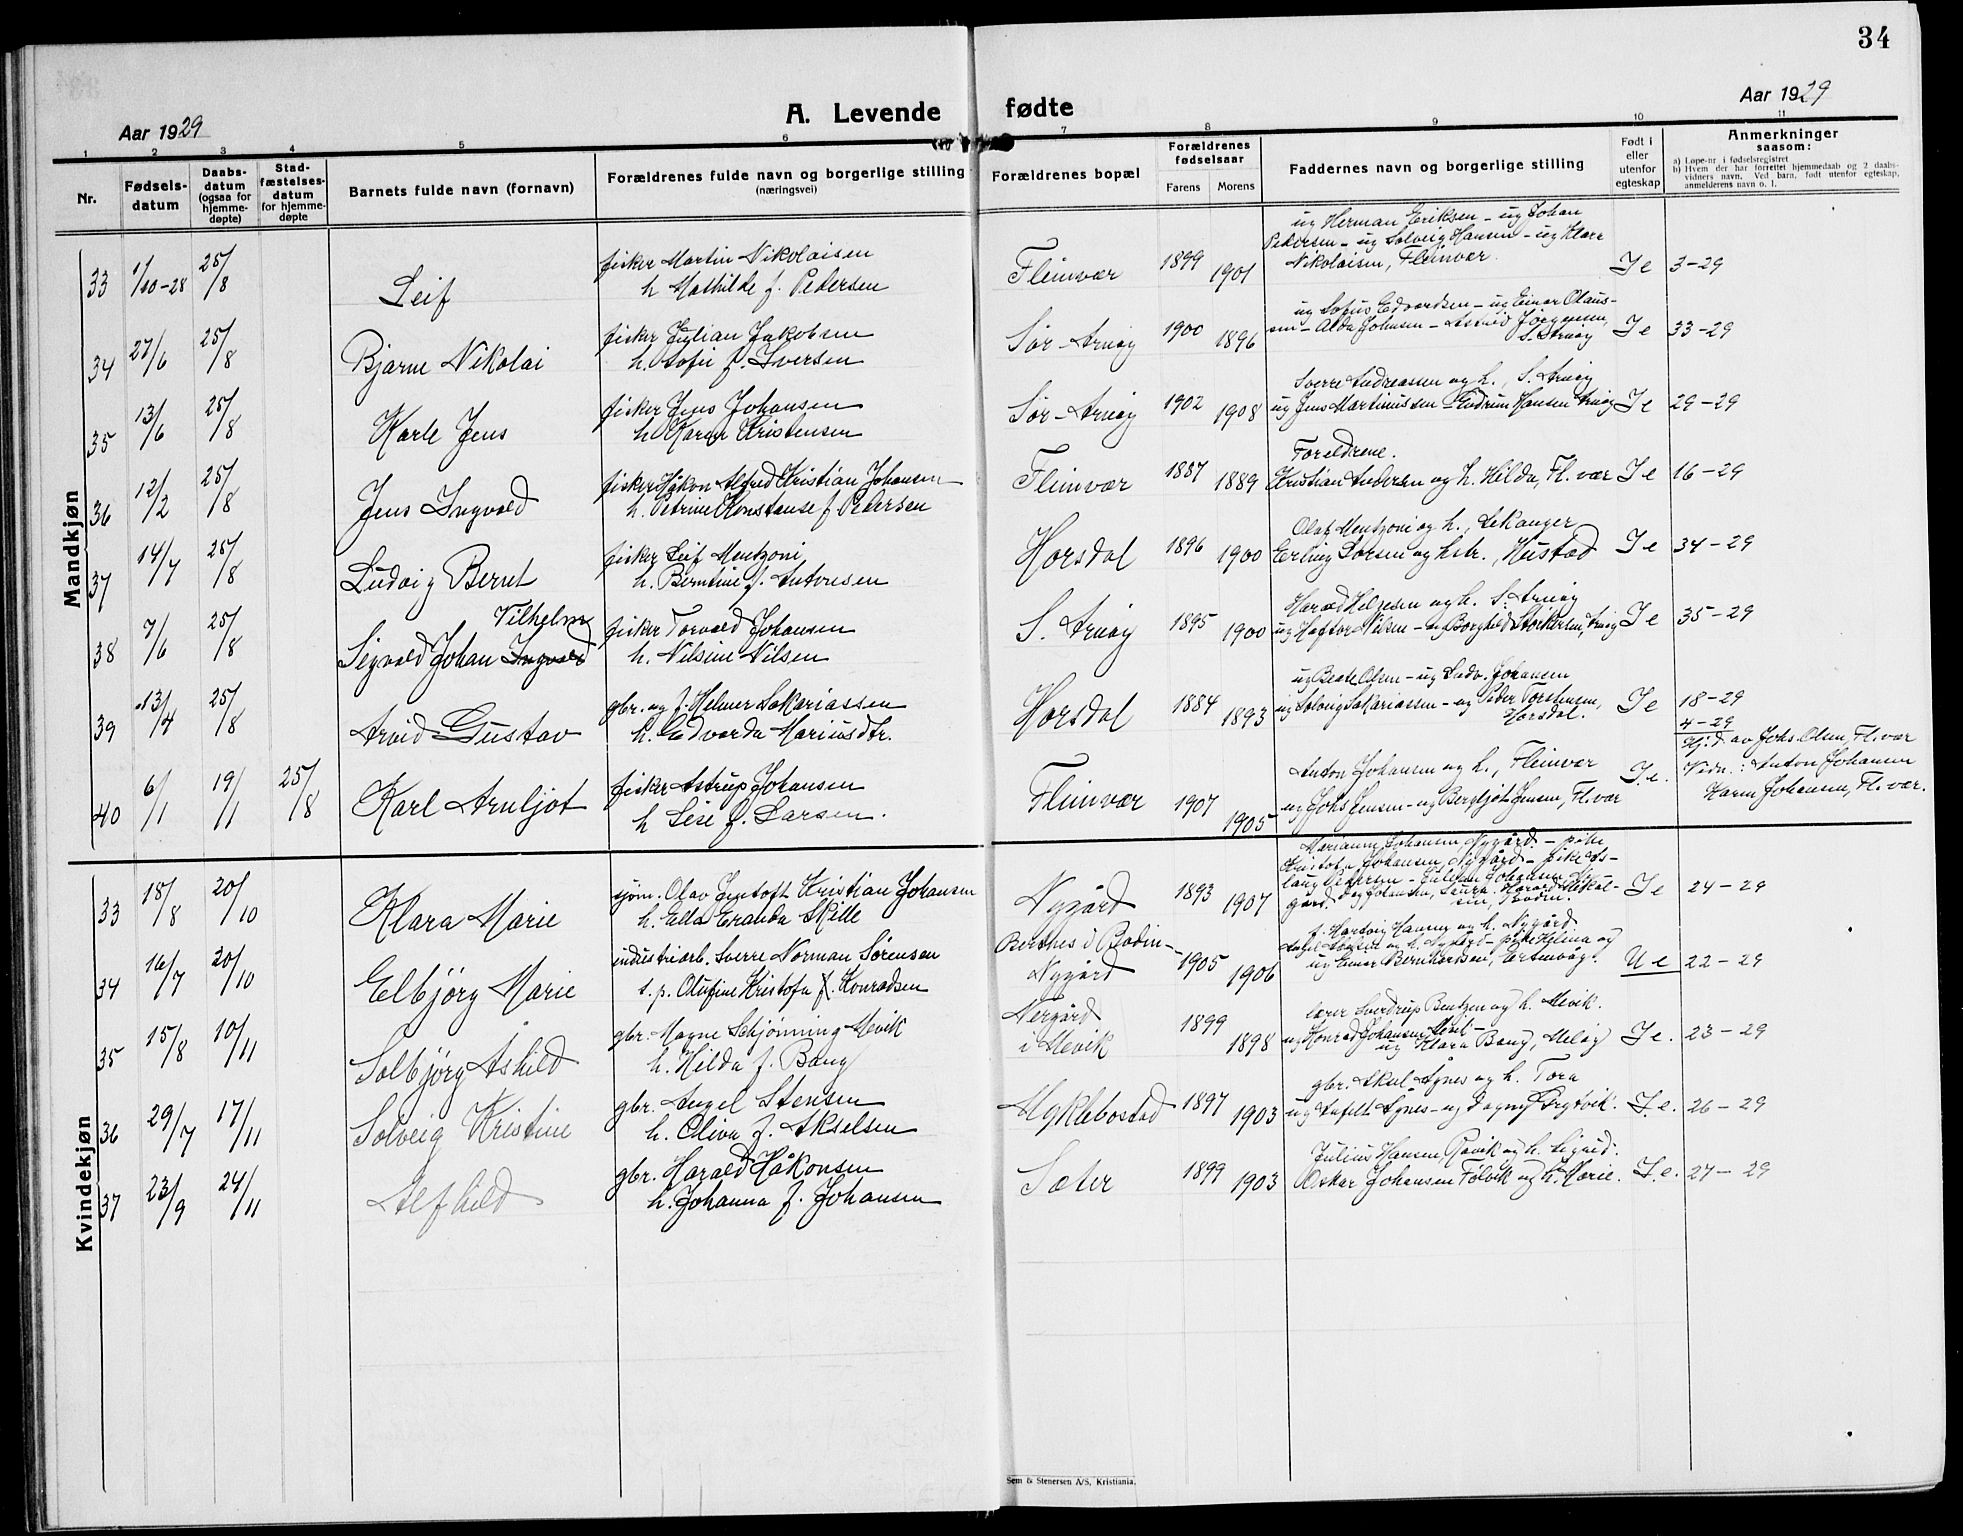 34
Aar 1929
A. Levende fødte
Aar 1929
1 2 3 4 5 6 7 8 9 10 11
Nr.
Fødsels-
datum
Daabs-
datum
(ogsaa for
hjemme-
døpte)
Stad-
fæstelses-
datum
for hjemme-
døpte
Barnets fulde navn (fornavn)
Forældrenes fulde navn og borgerlige stilling
(næringsvei)
Forældrenes bopæl
Forældrenes
fødselsaar
Farens Morens
Faddernes navn og borgerlige stilling
Født i
eller
utenfor
egteskap
Anmerkninger
saasom:
a) Løpe-nr i fødselsregistret
b) Hvem der har forrettet hjemmedaab og 2 daabs-
vidners navn. Ved barn, født utenfor egteskap,
anmelderens navn o. l.
Mandkjøn
33 1/10-28 25/8 Leif
fisker Martin Nikolaisen
h Mathilde f. Pedersen
Fleinvær 1899 1901
ug Herman Eriksen - ug Johan
Pedersen - ug Solveig Hansen - ug Klara
Nikolaisen, Fleinvær.
I e 3-29
34 27/6 25/8 Bjarne Nikolai
fisker Julian Jakobsen
h. Sofie f. Iversen
Sør-Arnøy 1900 1896
ug Sofus Edvardsen - ug Einar Olaus-
sen - Alda Johnsen - Astrid Jørgensen,
S. Arnøy
I e 33-29
35 13/6 25/8 Karle Jens
fisker Jens Johansen
h Karen Kristensen
Sør-Arnøy 1902 1908
Sverre Andreassen og h., S. Arnøy
ug Jens Martinussen - Gudrun Hansen Arnøy
I e 29-29
36 12/2 25/8 Jens Ingvald
fisker Håkon Alfred Kristian Johansen
h. Petrine Konstanse f Pedersen
Fleinvær 1887 1889
Foreldrene.
Kristian Andersen og h. Hilda, Fl. vær
I e 16-29
37 14/7 25/8 Ludvig Bernt
fisker Leif Mentzoni
h. Berntine f. Antonsen
Horsdal 1896 1900
Olaf Mentzoni og h., Lekanger
Erling Larsen og hstr., Hustad
I e 34-29
38 7/6 25/8 Vilhelm
Sigvald Johan Ingvald
fisker Torvald Johansen
h. Nilsine Nilsen
S. Arnøy 1895 1900
Harald Helgesen og h. S. Arnøy
ug Haftor Nilsen - ug Borghild Arnøy
I e 35-29
39 13/4 25/8 Arvid Gustav
gbr. og f. Helmer Sakariassen
h. Edvarda Mariusdtr.
Horsdal 1884 1893
ug Beate Olsen - ug Ludv. Johansen
ug Solveig Sakariassen - ug Peder Torstensen,
Horsdal.
I e 18-29
40 6/1 19/1 25/8 Karl Arnljot
fisker Astrup Johansen
h Lise f. Larsen.
Fleinvær 1907 1905
Anton Johansen og h., Fleinvær
ug Johs Jensen - ug Bergljot Jensen, Fl. vær
I e.
4-29
Hj. d. av Johs. Olsen, Fl. vær
Vidn.: Anton Johansen
Karen Johansen, Fl. vær.
Kvindekjøn
33 18/8 20/10 Klara Marie
sjøm. Olav Jentoft Kristian Johansen
h. Ella Eranda Skille
Nygård 1893 1907
Marianne Johansen, Nygård - pike
Kristofa Johansen, Nygård - pike As-
laug Pedersen - Julian Johansen
I e 24-29
34 16/7 20/10 Elbjørg Marie
industriarb. Sverre Norman Sørensen
s. p. Olufine Kristofa f. Konradsen
Bertnes i Bodin -
Nygård 1905 1906
f. Hartvig Hansen og h. Nygård
pike Helina og
ug Einar Bernhardsen,
U e 22-29
35 15/8 10/11 Solbjørg Ashild
gbr. Magne Schjønning Mevik
h. Hilda f. Bang
Nergård
i Mevik 1899 1898
lærer Sverdrup Bentzen og h. Mevik.
ug Konrad Johansen Mevik -
ug Klara Bang, Meløy
I e. 23-29
36 29/7 17/11 Solveig Kristine
gbr. Angel Stensen
h. Oliva f. Akselsen
Myklebostad 1897 1903
gbr. Skul Agnes og h. Tora
I e. 26-29
37 23/9 24/11 Alfhild
gbr. Harald Håkonsen
h. Johanna f. Johansen
Sæter 1899 1903
Julius Hansen, og h. Sigrid.
Oskar Johansen Følvik og h. Marie.
I. e. 27-29
Sem & Stenersen A/S, Kristiania.